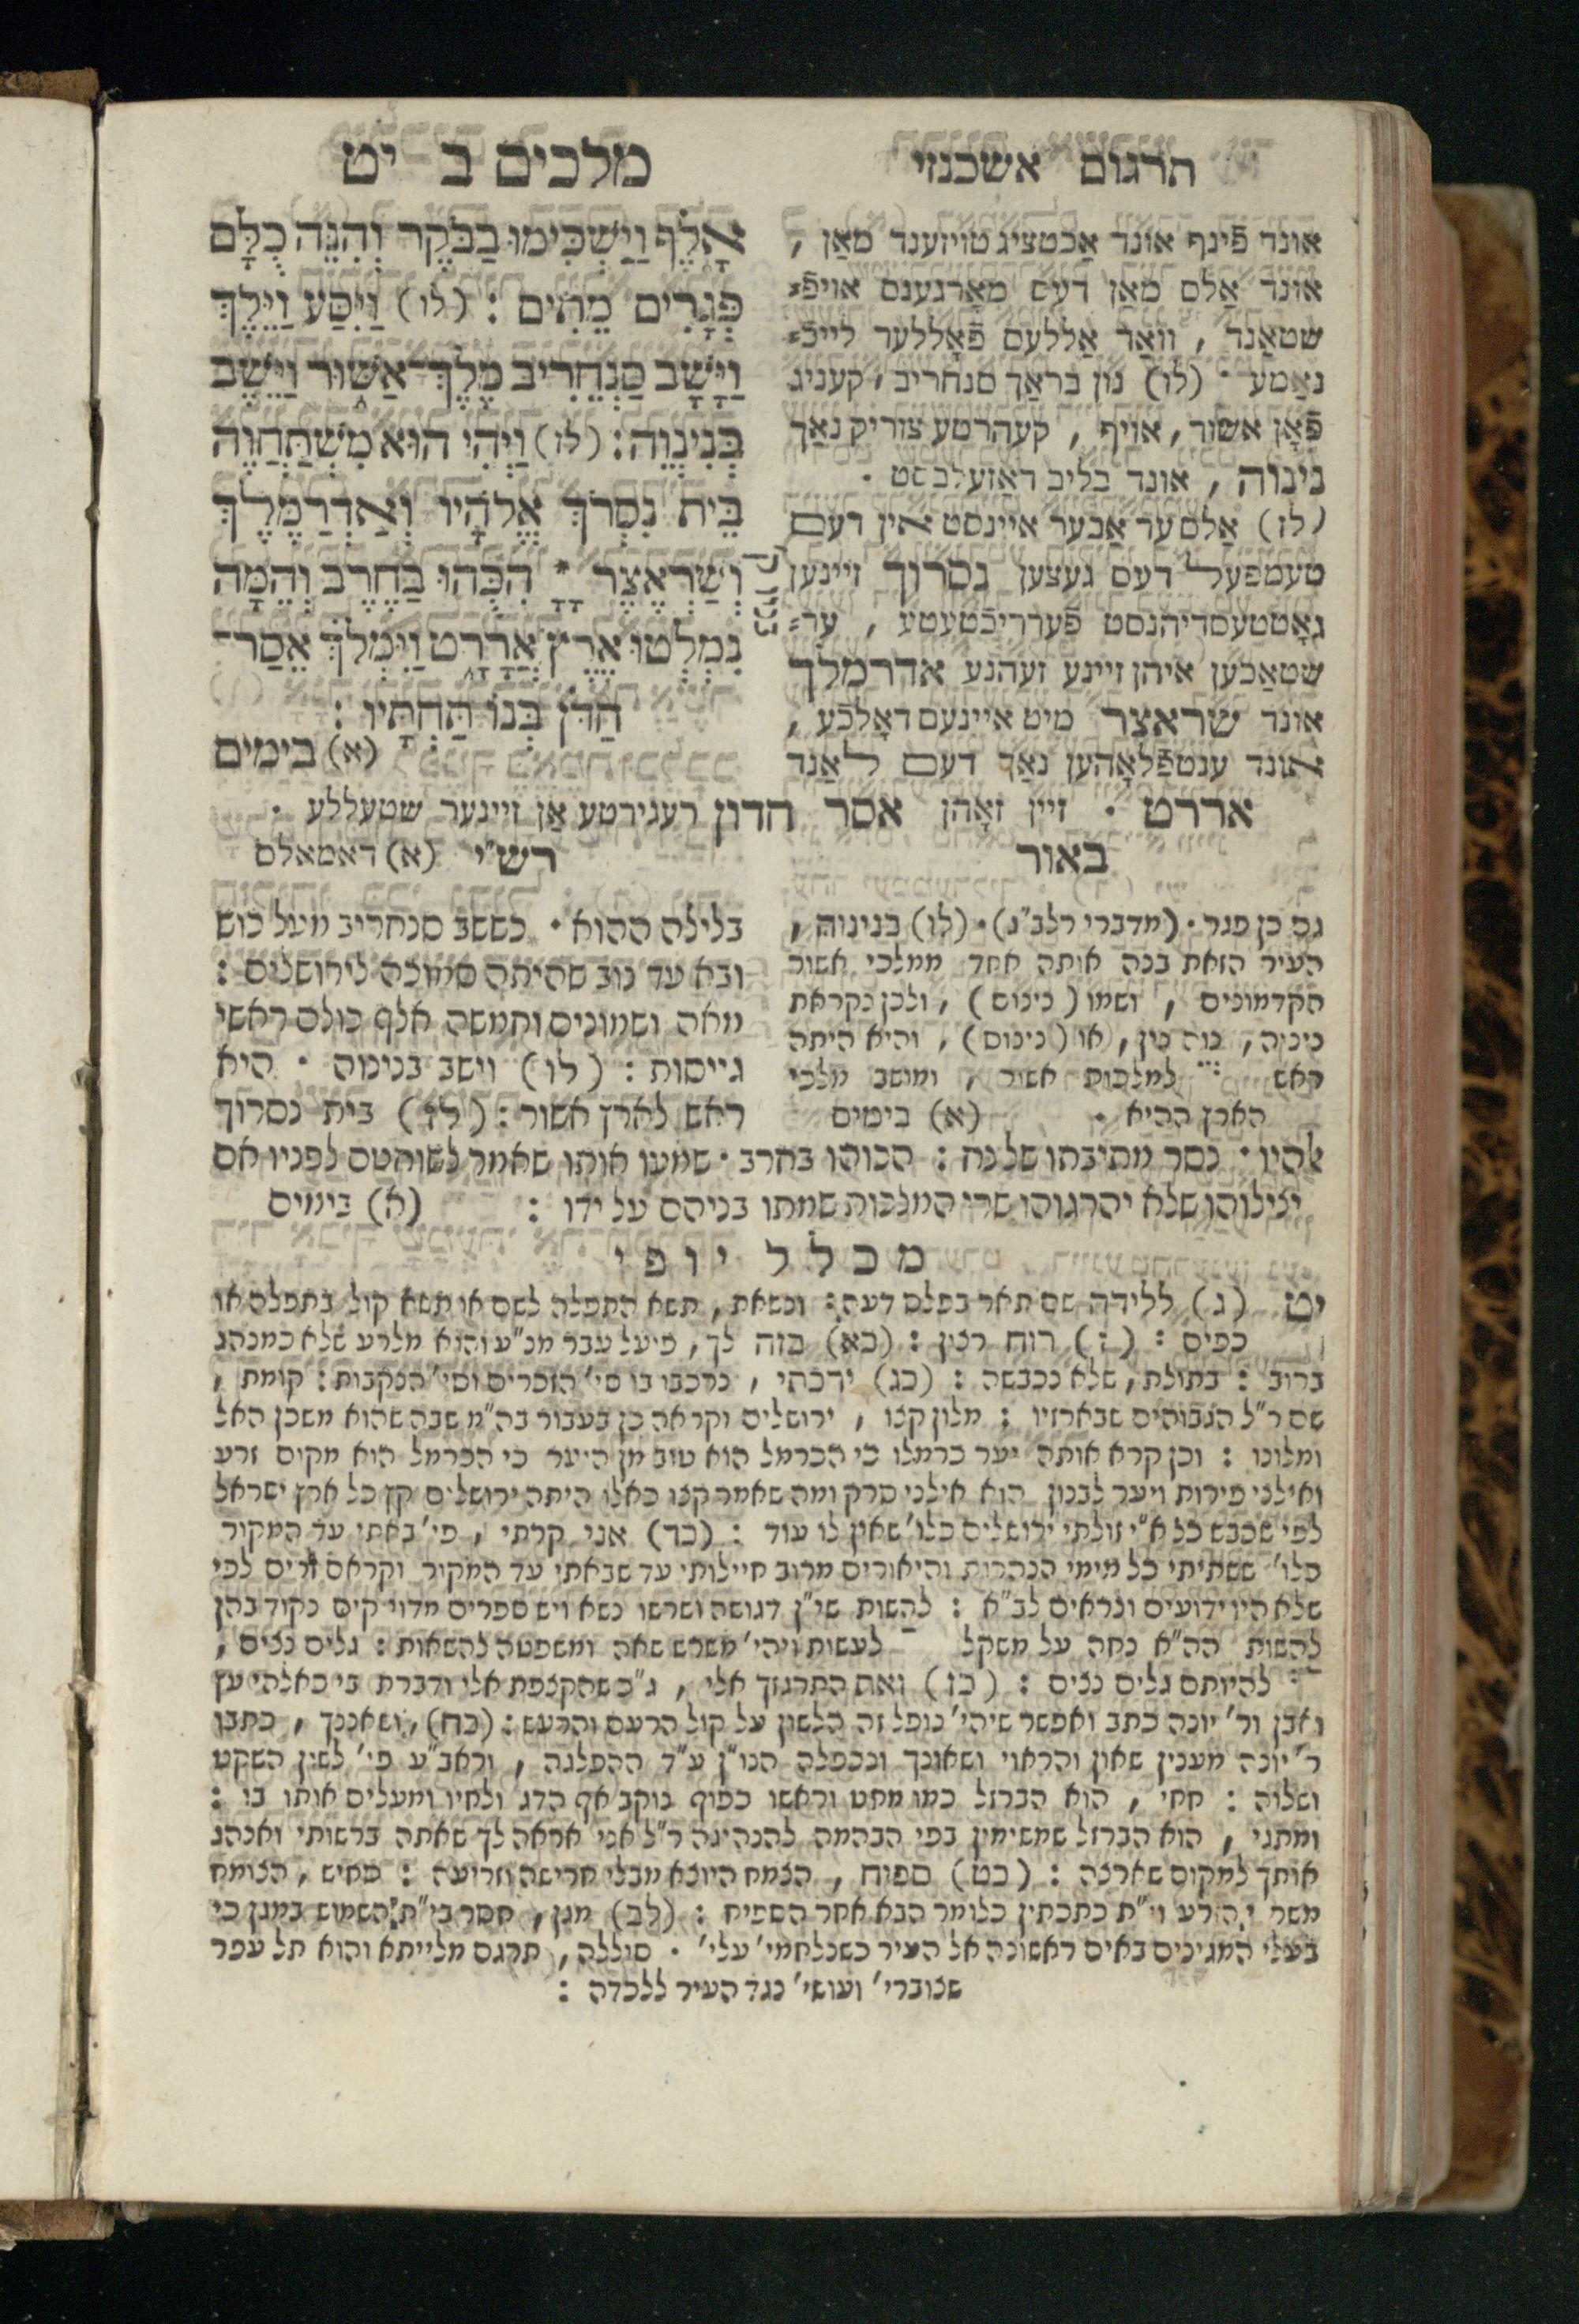 תרגום אשכנזי
מלכים ב יט
אָלֶף וַיַּשְׁכִּימוּ בַבֹּקֶר וְהִנֵּה כֻלָּם
פְּגָרִים מֵתִים : (לו) וַיִּסַּע וַיֵּלֶךְ
וַיָּשָׁב סַנְחֵרִיב מֶלֶךְ־אַשּׁוּר וַיֵּשֶׁב
בְּנִינְוֵה : (לז) וַיְהִי הוּא מִשְׁתַּחֲוֶה
בֵּית נִסְרֹךְ אֱלֹהָיו וְאַדְרַמֶּלֶךְ
וְשַׂרְאֶצֶר * הִכֻּהוּ בַחֶרֶב וְהֵמָּה
בניו קרי
נִמְלְטוּ אֶרֶץ אֲרָרָט וַיִּמְלֹךְ אֵסַר־
חַדֹּן בְּנוֹ תַּחְתָּיו :
(א) בימים
אונד פֿינף אונד אַכטציג טויזענד מאַן ,
אונד אַלס מאַן דעס מאָרגענס אויפֿ⸗
שטאַנד , וואַר אַללעס פֿאָללער לייכֿ⸗
נאַמע · (לו) נון בראַך סנחריב , קעניג
פֿאָן אשור , אויף , קעהרטע צוריק נאַך
נינוה , אונד בליב דאַזעלבסט ·
(לז) אַלס ער אַבער איינסט אין דעם
טעמפעל דעס געצען נסרוך זיינען
גאָטטעסדיהנסט פֿערריכֿטעטע , ער⸗
שטאַכען איהן זיינע זעהנע אדרמלך
אונד שראצר מיט איינעם דאָלכֿע ,
אונד ענטפֿלאָהען נאַך דעם לאַנד
אררט · זיין זאָהן אסר חדון רעגירטע אַן זיינער שטעללע ·
באור
גם כן פגר · (מדברי רלב״ג) · (לו) בנינוה ,
העיר הזאת בנה אותה אחד ממלכי אשור
הקדמונים , ושמו (נינוס) , ולכן נקראת
נינוה , נוה נין , או (נינוס) , והיא היתה
ראש למלכות אשור , ומושב מלכי
הארץ ההיא · (א) בימים
רש״י (א) דאמאלס
בלילה ההוא · כששב סנחריב מעל כוש
ובא עד נוב שהיתה סמוכה לירושלים :
מאה ושמונים וחמשה אלף כולם ראשי
גייסות : (לו) וישב בנינוה · היא
ראש לארץ אשור : (לז) בית נסרוך
אלהיו · נסר מתיבתו של נח : הכוהו בחרב · שמעו אותו שאמר לשוחטם לפניו אם
יצילוהו שלא יהרגוהו שרי המלכות שמתו בניהם על ידו : (א) בימים
מכלל יופי
יט (ג) ללידה שם תאר בפלס דעה : ונשאת , תשא התפלה לשם או תשא קול בתפלה או
כפים : (ז) רוח רצון : (כא) בזה לך , פיעל עבר מנ״ע והוא מלרע שלא כמנהג
ברוב : בתולת , שלא נכבשה : (כג) ירכתי , נרכבו בו סי׳ הזכרים וסי׳ הנקבות : קומת ,
שם ר״ל הגבוהים שבארזיו : מלון קצו , ירושלים וקראה כן בעבור בה״מ שבה שהוא משכן האל
ומלונו : וכן קרא אותה יער כרמלו כי הכרמל הוא טוב מן היער כי הכרמל הוא מקום זרע
ואילני פירות ויער לבנון הוא אילני סרק ומה שאמר קצו כאלו היתה ירושלים קץ כל ארץ ישראל
לפי שכבש כל א״י זולתי ירושלים כלו׳ שאין לו עוד : (כד) אני קרתי , פי׳ באתי עד המקור
כלו׳ ששתיתי כל מימי הנהרות והיאורים מרוב חיילותי עד שבאתי עד המקור וקראם זרים לפי
שלא היו ידועים ונראים לב״א : להשות שי״ן דגושה ושרשו נשא ויש ספרים מדוייקים נקוד בהן
להשות הה״א נחה על משקל לעשות ויהי׳ משרש שאה ומשפטה להשאות : גלים נצים ,
להיותם גלים נצים : (כז) ואת התרגזך אלי , ג״כ שהקצפת אלי ודברת בי כאלהי עץ
ואבן ור׳ יונה כתב ואפשר שיהי׳ נופל זה הלשון על קול הרעם והרעש : (כח) , ושאננך , כתבו
ר׳ יונה מענין שאון והראוי ושאונך ונכפלה הנו״ן ע״ד ההפלגה , וראב״ע פי׳ לשון השקט
ושלוה : חחי , הוא הברזל כמו מחט וראשו כפוף נוקב אף הדג ולחיו ומעלים אותו בו :
ומתגי , הוא הברזל שמשימין בפי הבהמה להנהיגה ר״ל אני אראה לך שאתה ברשותי ואנהג
אותך למקום שארצה : (כט) ספיח , הצמח היוצא מבלי חרישה וזריעה : סחיש , הצומח
משר יהזרע וי״ת כתכתין כלומר הבא אחר הספיח : (לב) מגן , חסר בי״ת השמוש במגן כי
בעלי המגינים באים ראשונה אל העיר כשנלחמי׳ עלי׳ · סוללה , תרגם מלייתא והוא תל עפר
שצוברי׳ ועושי׳ נגד העיר ללכדה :